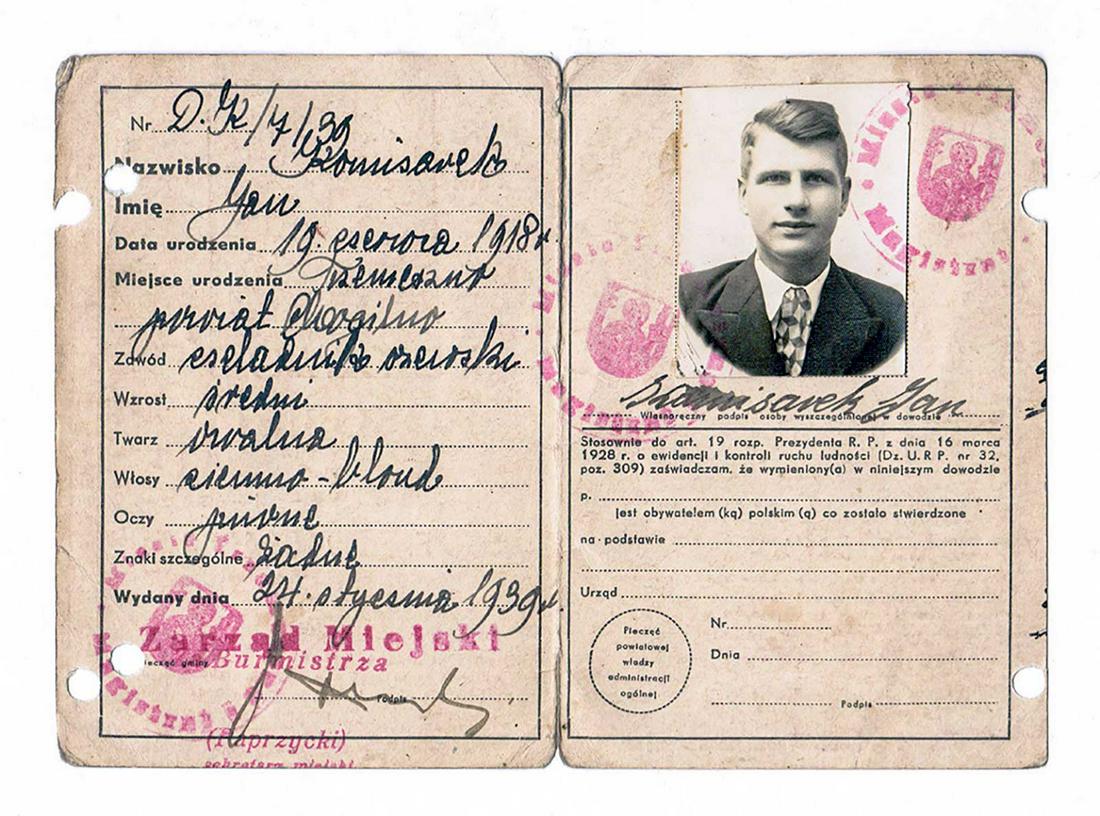 Nr. D.K/7/39
Nazwisko Komisarek
Imię Jan
Data urodzenia 19. czerwca 1918 r.
Miejsce urodzenia Trzemeszno
powiat Mogilno
Zawód czeladnik szewski
Wzrost średni
Twarz owalna
Włosy ciemno-blond
Oczy piwne
Znaki szczególne żadne
Wydany dnia 24. stycznia 1939 r.
Zarząd Miejski
Pieczęć gminy Burmistrza
Podpis
(Paprzycki)
sekretarz miejski
Magistrat
Komisarek Jan
Własnoręczny podpis osoby wyszczególnionej w dowodzie
Stosownie do art. 19 rozp. Prezydenta R. P. z dnia 16 marca
1928 r. o ewidencji i kontroli ruchu ludności (Dz. U. R P. nr 32,
poz. 309) zaświadczam, że wymieniony(a) w niniejszym dowodzie
p.
jest obywatelem (ką) polskim (ą) co zostało stwierdzone
na podstawie
Urząd
Pieczęć
powiatowej
władzy
administracji
ogólnej
Nr
Dnia
Podpis